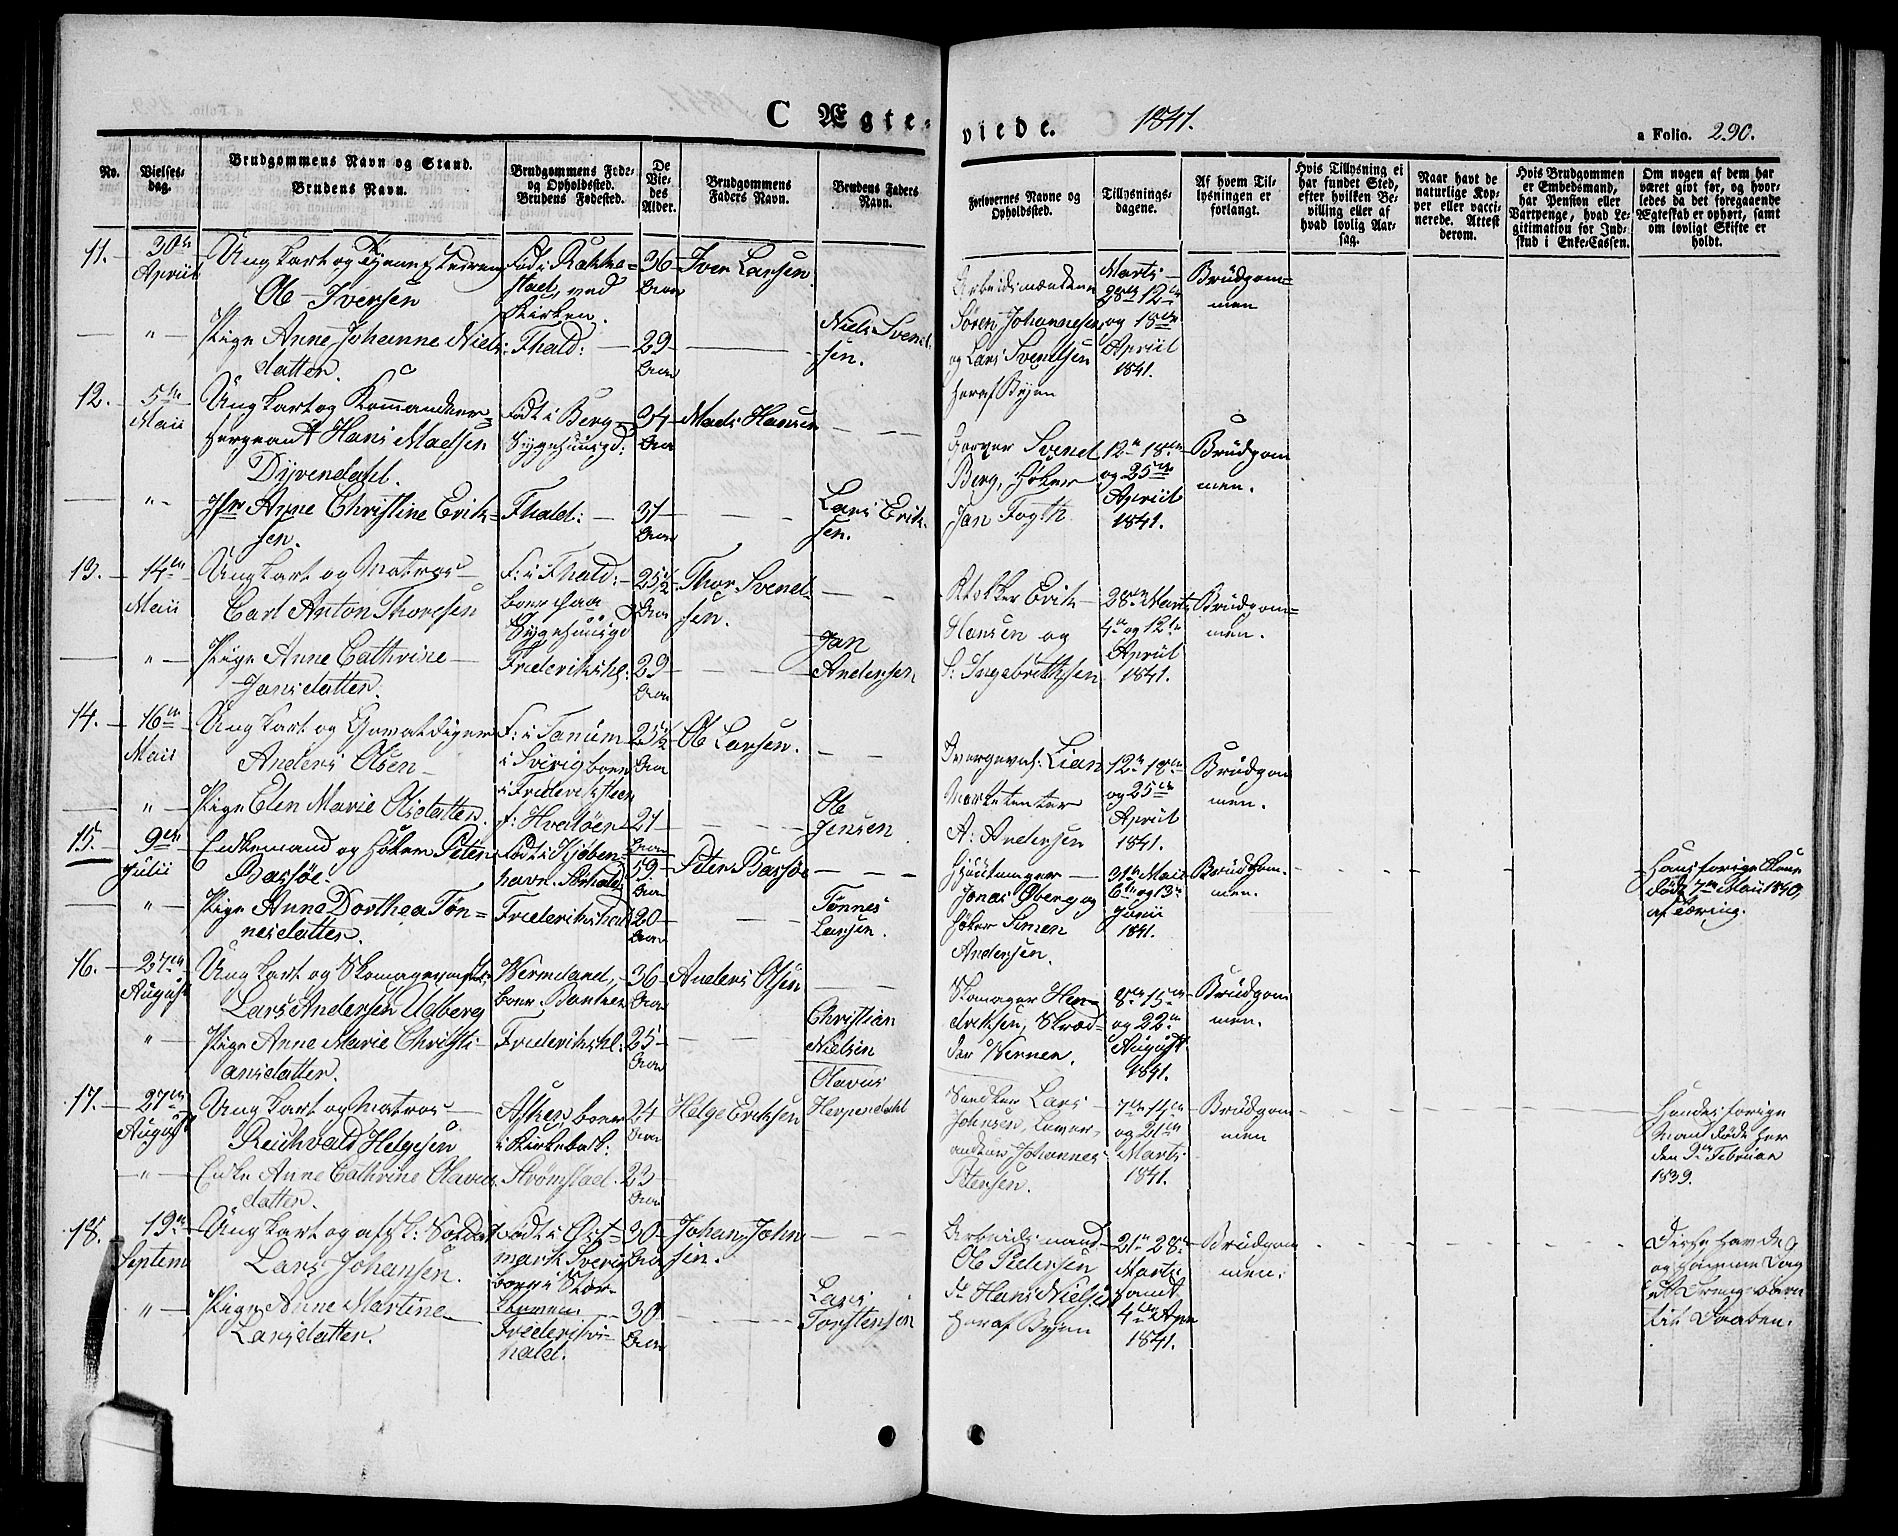 C Ægte-
viede. 1841.
a Folio. 290.
No.
Vielses-
dag.
Brudgommens Navn og Stand.
Brudens Navn.
Brudgommens Føde-
og Opholdssted.
Brudens Fødested.
De
Vie-
des
Alder.
Brudgommens
Faders Navn.
Brudens Faders
Navn.
Forlovernes Navne og
Opholdssted.
Tillysnings-
dagene.
Af hvem Til-
lysningen er
forlangt.
Hvis Tillysning ei
har fundet Sted,
efter hvilken Be-
villing eller af
hvad lovlig Aar-
sag.
Naar havt de
naturlige Kop-
per eller vacci-
nerede. Attest
derom.
Hvis Brudgommen
er Embedsmand,
har Pension eller
Vartpenge, hvad Le-
gitimation for Ind-
skud i Enke-Cassen.
Om nogen af dem har
været givt før, og hvor-
ledes da det foregaaende
Ægteskab er ophørt, samt
om lovligt Skifte er
holdt.
11.
30te
April
Ungkarl og
Ole Iversen
Født i Rakke-
stad, ved
Kirken.
36
Aar
Iver Larsen.
Arbeidsmændene
Søren Johannesen
og Lars Svendsen
heraf Byen
Marts
28de 12te
og 18de
April
1841.
Brudgom-
men
" Pige Anne Johanne Niels-
datter.
Fhald:
29
Aar
Niels Svend-
sen.
12.
5te
Maii
Ungkarl og Kommandeer-
Sergeant Hans Madsen
Dyvendahl.
Født i Berg
Sygehuusgd:
34
Aar
Mads Hansen
Garver Svend
Berg, Høker
Jan Fogth
12te 18de
og 25de
April
1841.
Brudgom
men.
" Jfr Anne Christine Erik-
sen.
Fhald:
31
Aar
Lars Erik-
sen.
13.
14de
Maii
Ungkarl og Matros
Carl Anton Thoresen
F: i Fhald:
boer paa
Sygehuusgd
25½
Aar
Thor Svend-
sen.
Erik
Hansen og
S: Ingebrethsen
28de Marts
4de og 12te
April
1841.
Brudgom-
men.
" Pige Anne Cathrine
Jansdatter.
Frederikshl:
29
Aar
Jan
Andersen
14.
16de
Maii
Ungkarl og
Anders Olsen
F: i Tanum
i Sverig boer
i Frederiksteen
25½
Aar
Ole Larsen.
Lian
Marketenter
A: Andersen
12te 18de
og 25de
April
1841.
Brudgom
men.
" Pige Elen Marie Olsdatter.
f: Hvaløen
21
Aar
Ole
Jensen
15.
9de
Julii
Enkemand og Høker Peter
Bassøe.
Født i Kjøben-
havn
59
Aar
Peter Bassøe
Jonas Øberg og
Høker Simen
Andersen.
31te Maii
6te og 13de
Junii
1841.
Brudgom-
men.
Hans forige Kone
døde 7de Maii 1840,
af Tæring.
" Pige Anne Dorthea Tøn-
nesdatter.
Frederikshald
20
Aar
Tønnes
Larsen.
16.
27de
August
Ungkarl og Skomagermester
Lars Andersen Udberg
Wermeland,
boer
36
Aar
Anders Olsen
Skomager Hen-
driksen, Skræd-
der Werner.
8de 15de
og 22de
August
1841.
Brudgom
men.
" Pige Anne Marie Christi-
ansdatter.
Frederikshl:
25
Aar
Christian
Nielsen
17.
27de
August
Ungkarl og Matros
Reichvald Helgesen
boer
i Kirkebak:
24
Aar
Helge Eriksen
Olavus
Lars
Johnsen,
Johannes
Petersen.
7de 14de
og 21de
Marts
1841.
Brudgom
men
Hendes forige
Mand døde her
den 9de Februar
1839.
" Enke Anne Cathrine Olavus
datter.
Strømstad.
23
Aar
18.
19de
Septem
Ungkarl og afsk: Soldat
Lars Johansen.
Født i Øst-
mark Sverig
30
Aar
Johan John
sen.
Arbeidsmand
Ole Pedersen
do Hans Nielsen
heraf Byen
21de 28de
Marts
samt
4de Apr
1841.
Brudgom
men.
Disse havde
og samme Dag
et Dreng-barn
til Daaben.
" Pige Anne Martine
Larsdatter.
Frederiks-
hald.
30
Aar
Lars
Torstensen